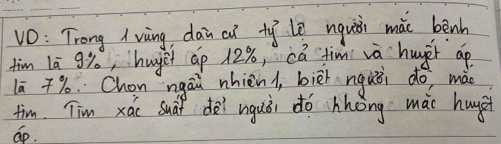 VD: Trong 1 vùng dân cư tỷ lệ người mắc bệnh
tim là 9%, huyết áp 12%, cả tim và huyết áp
là 7%. Chọn ngẫu nhiên 1, biết người đó mắc
tim. Tìm xác suất để người đó không mắc huyết
áp.